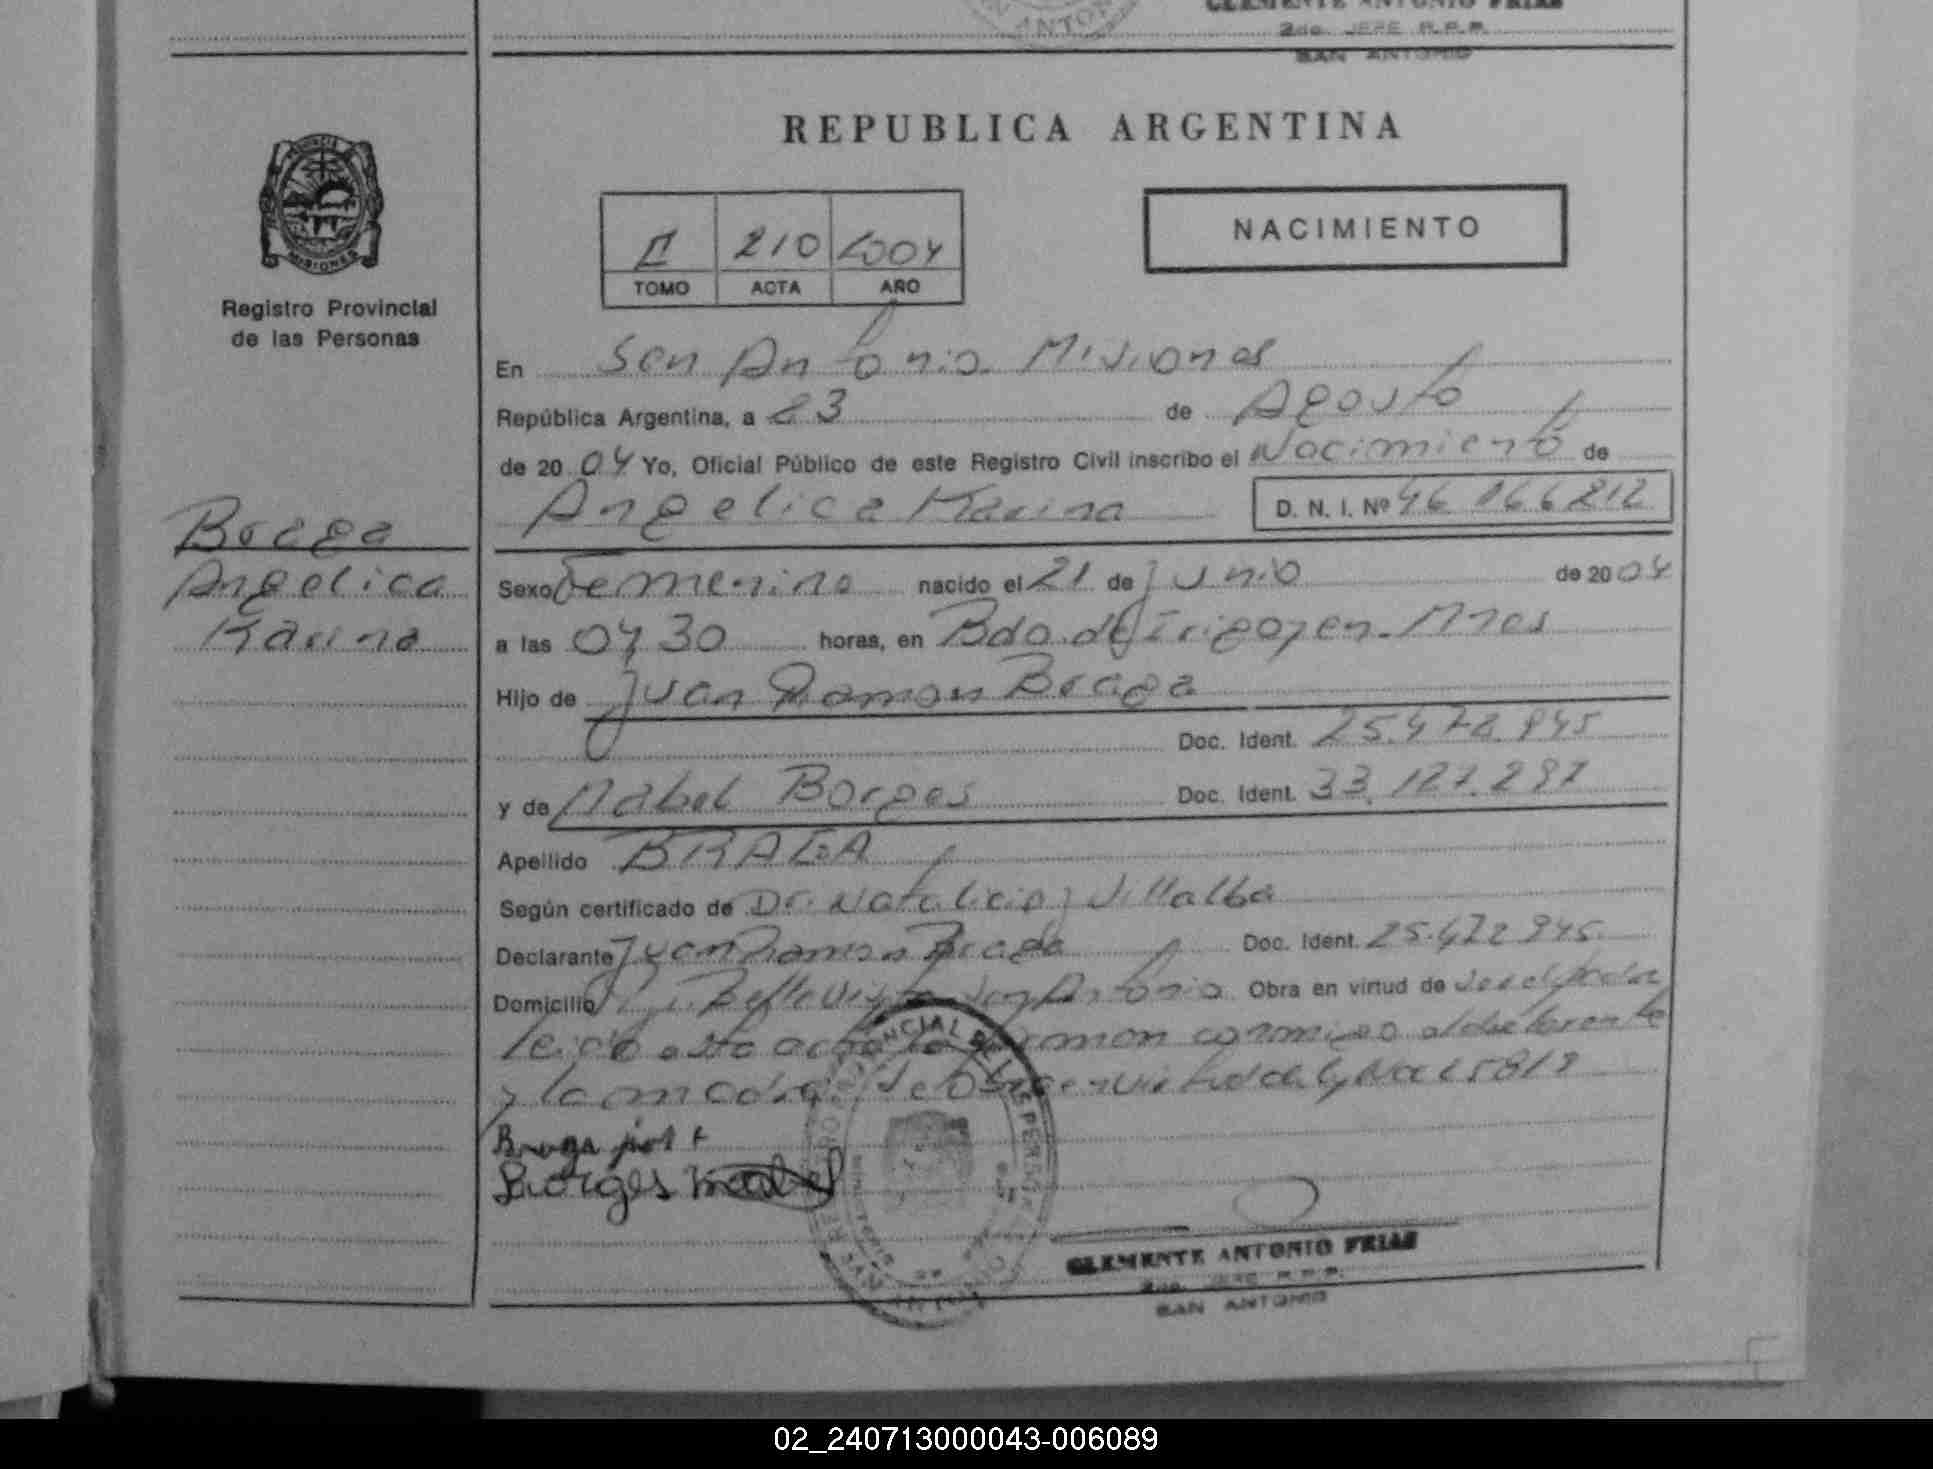 CLEMENTE ANTONIO FRIAS
2do. JEFE R.P.P.
SAN ANTONIO
REPUBLICA ARGENTINA
MISIONES
Registro Provincial
de las Personas
II 210 2004
TOMO ACTA AÑO
NACIMIENTO
En San Antonio Misiones
República Argentina, a 23 de Agosto
de 2004 Yo, Oficial Público de este Registro Civil inscribo el Nacimiento de
Angelica Karina D. N. I. Nº 46 066 812
Braga
Angelica
Karina
Sexo Femenino nacido el 21 de Junio de 2004
a las 04,30 horas, en Bdo. de Irigoyen - Mnes
Hijo de Juan Ramon Braga
Doc. Ident. 25.472.945
y de Mabel Borges Doc. Ident. 33.127.297
Apellido BRAGA
Según certificado de Dr. Natalicio J Villalba
Declarante Juan Ramon Braga Doc. Ident. 25.472.945
Domicilio Bella Vista San Antonio Obra en virtud de
leida esta acta la firman conmigo el declarante
y la madre. Se Obra en virtud de Ley Nac 25819
Braga
Borges Mabel
CLEMENTE ANTONIO FRIAS
2do. JEFE R.P.P.
SAN ANTONIO
02_240713000043-006089